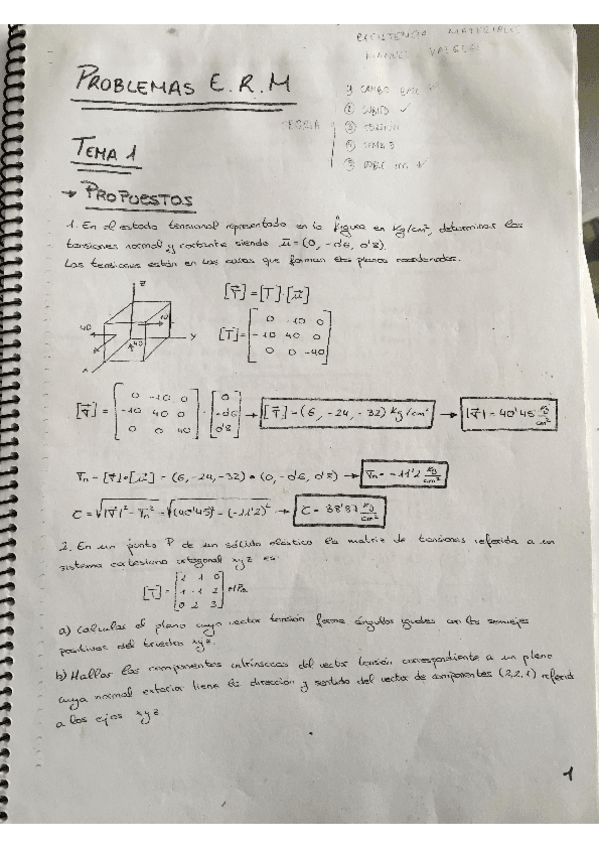 RESISTENCIA MATERIALES
PROBLEMAS E.R.M
TEORIA
② SUBITO ✓
③ TORSIÓN
④ TEMA 3
TEMA 1
→ PROPUESTOS
1. En el estado tensional representado en la figura en Kg/cm², determinar las
tensiones normal y cortante siendo μ⃗ = (0, -0'6, 0'8).
Las tensiones están en las caras que forman los planos coordenados.
z
40
10
40
y
x
[σ⃗] = [T]·[μ⃗]
[T] = [0 -10 0
-10 40 0
0 0 -40]
[σ⃗] = [0 -10 0
-10 40 0
0 0 40] · [0
-0'6
0'8] → [σ⃗] = (6, -24, -32) Kg/cm² → |σ⃗| = 40'45 Kg/cm²
σn = [σ⃗]·[μ⃗] = (6, -24, -32) · (0, -0'6, 0'8) → σn = -11'2 Kg/cm²
C = √|σ⃗|² - σn² = √(40'45)² - (-11'2)² → C = 38'87 Kg/cm²
2. En un punto P de un sólido elástico la matriz de tensiones referida a un
sistema cartesiano ortogonal xyz es:
[T] = [2 1 0
1 -1 2
0 2 3] MPa
a) Calcular el plano cuyo vector tensión forme ángulos iguales con los semiejes
positivos del triedro xyz.
b) Hallar las componentes intrínsecas del vector tensión correspondiente a un plano
cuya normal exterior tiene la dirección y sentido del vector de componentes (2,2,1) referido
a los ejes xyz.
1